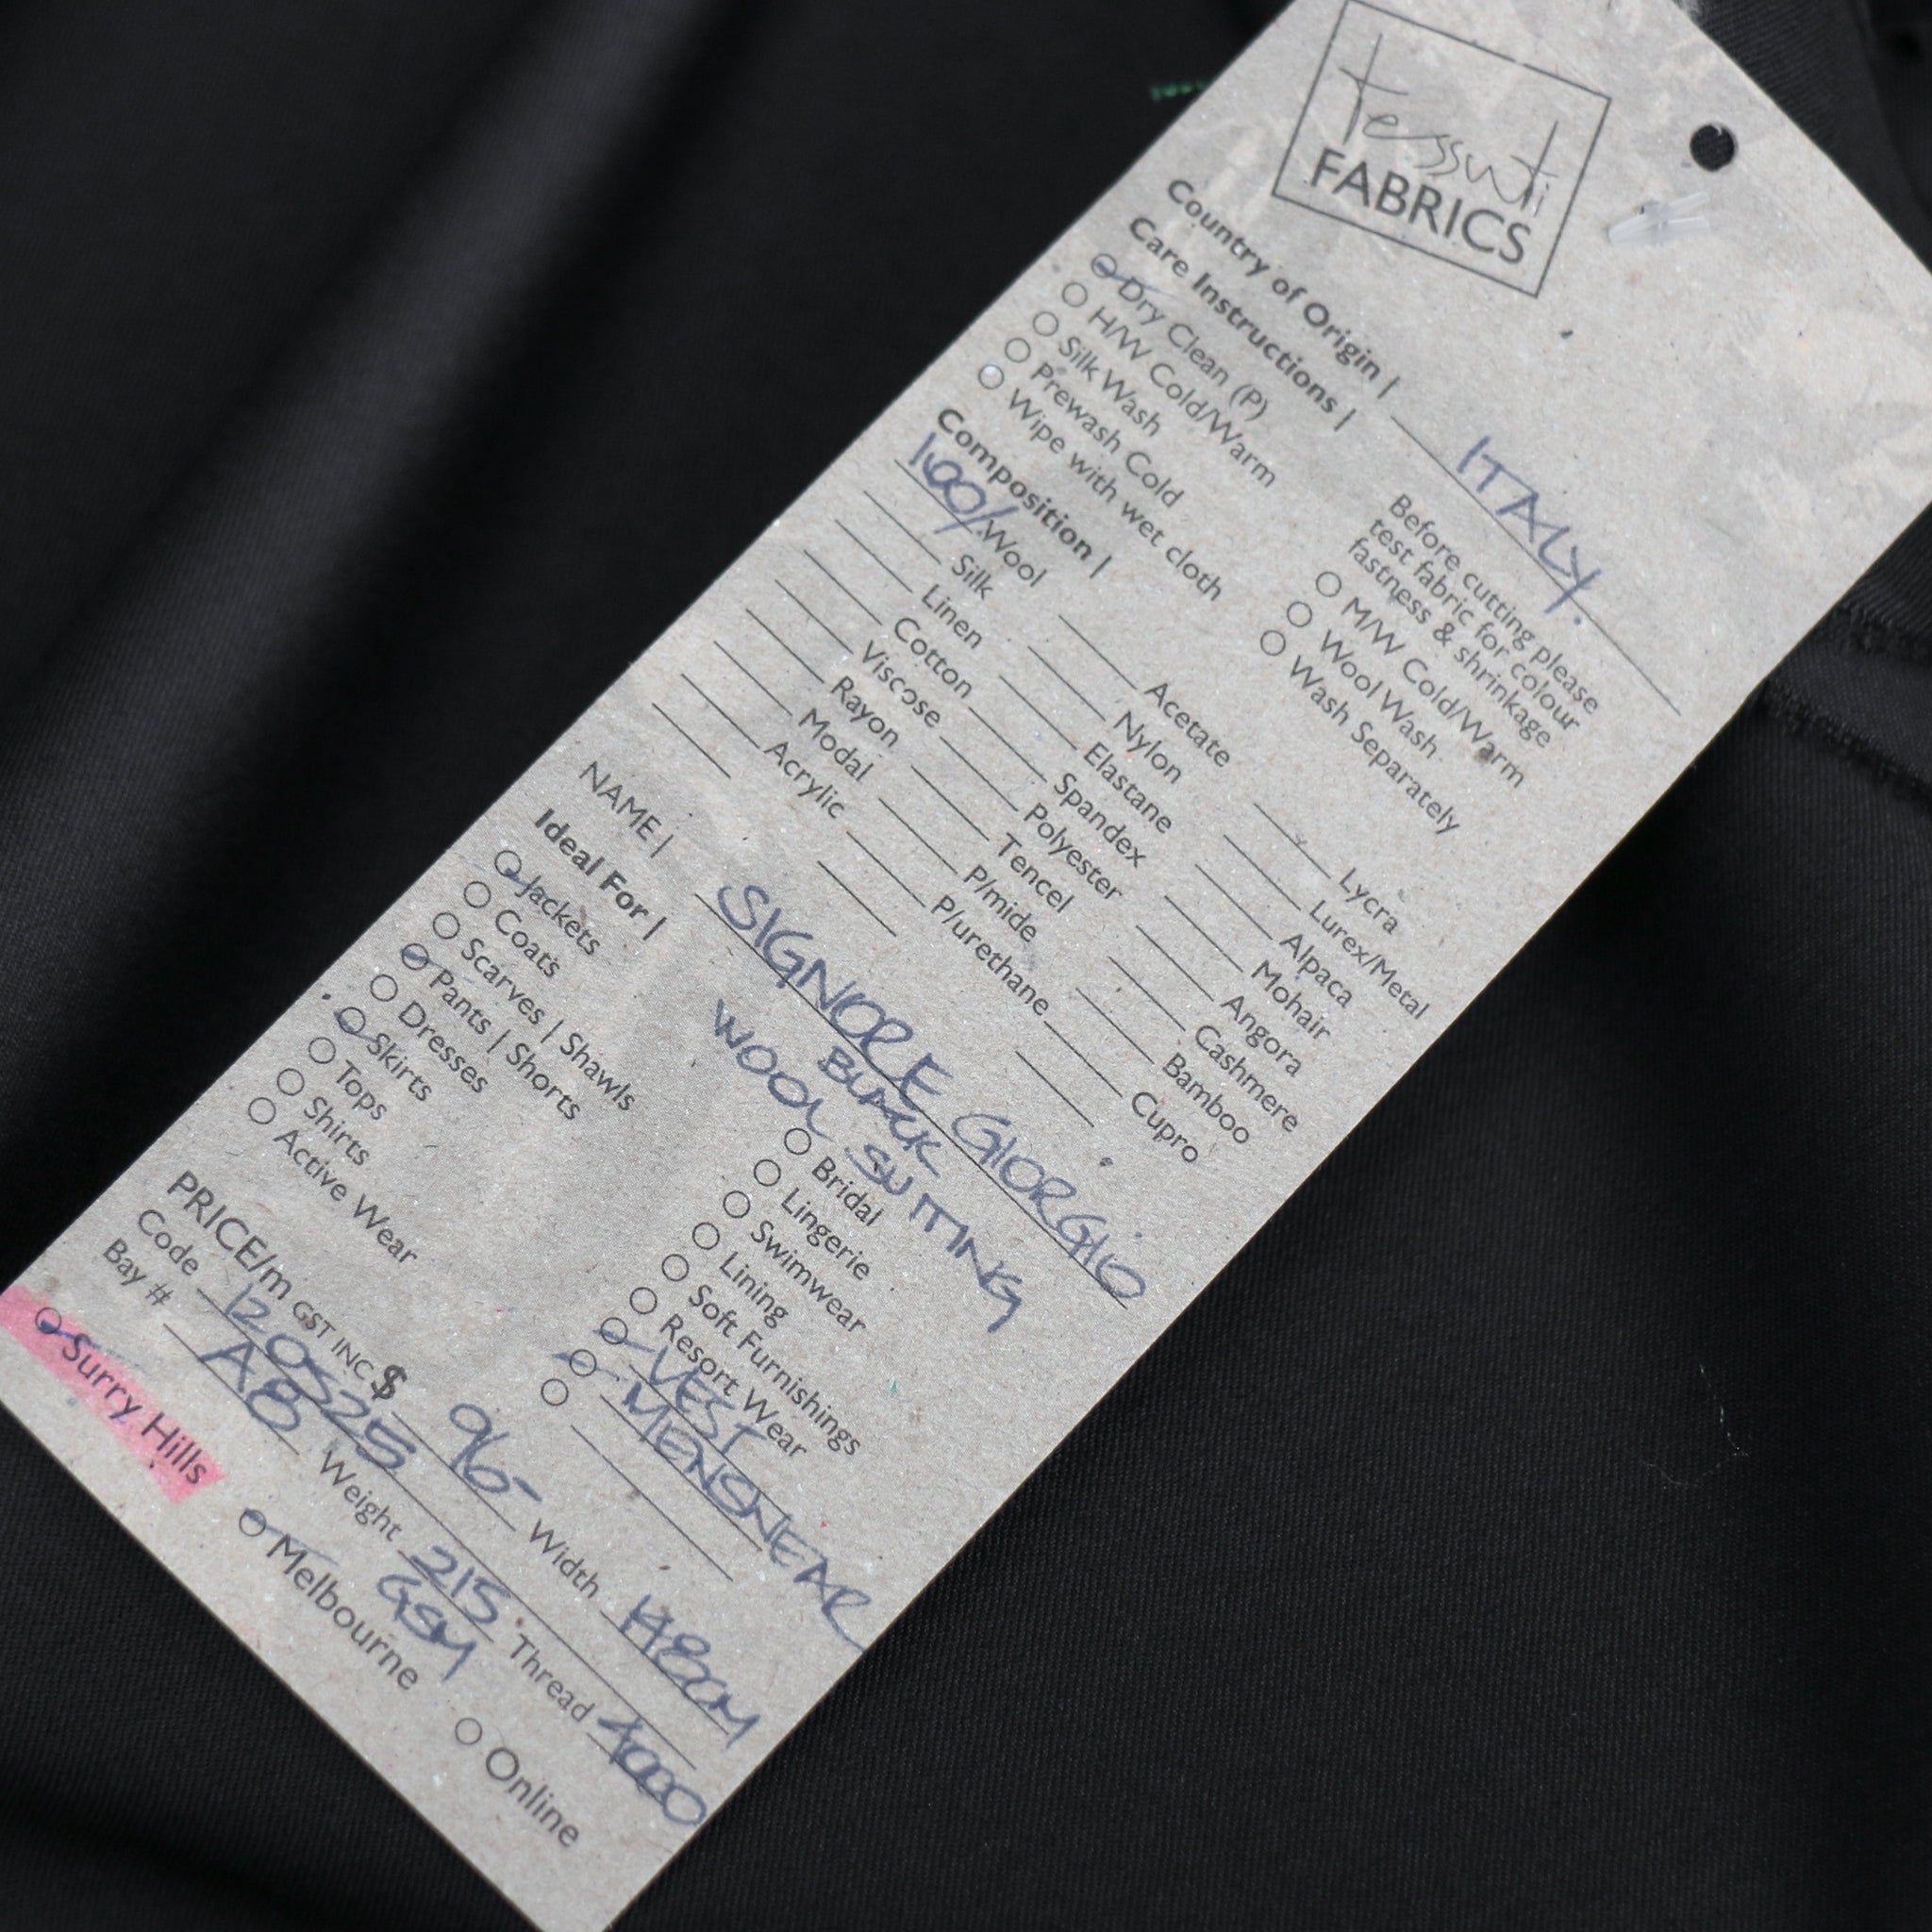 tessuti
FABRICS
Country of Origin | ITALY.
Care Instructions |
Dry Clean (P)
H/W Cold/Warm
Silk Wash
Prewash Cold
Wipe with wet cloth
Before cutting please
test fabric for colour
fastness & shrinkage
M/W Cold/Warm
Wool Wash
Wash Separately
Composition |
100% Wool
Silk
Linen
Cotton
Viscose
Rayon
Modal
Acrylic
Acetate
Nylon
Elastane
Spandex
Polyester
Tencel
P/mide
P/urethane
Lycra
Lurex/Metal
Alpaca
Mohair
Angora
Cashmere
Bamboo
Cupro
NAME | SIGNIORE GIORGIO
BLACK
WOOL SUITING
Ideal For |
Jackets
Coats
Scarves | Shawls
Pants | Shorts
Dresses
Skirts
Tops
Shirts
Active Wear
Bridal
Lingerie
Swimwear
Lining
Soft Furnishings
Resort Wear
VEST
MENSWEAR
PRICE/m GST INC $ 96- Width 148CM
Code 120525 Thread 4000
Bay # A8 Weight 215 GSM
Surry Hills Melbourne Online